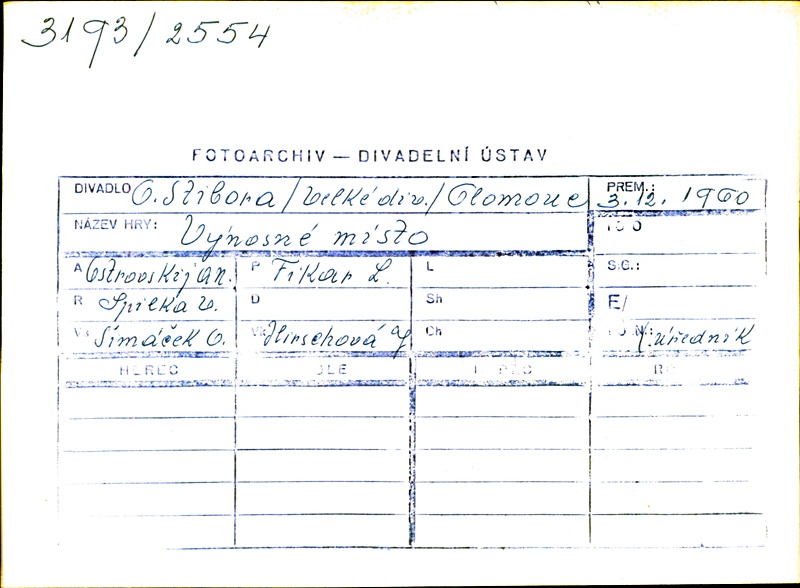 3193/2554
FOTOARCHIV — DIVADELNÍ ÚSTAV
DIVADLO O. Stibora /velké div./ Olomouc PREM.: 3.12. 1960
NÁZEV HRY: Výnosné místo
A Ostrovskij A.N. P Fikar L. L S.G.:
R Spilka V. D Sh E/
Vs Šimáček O. Vk Hirschová Ch /.úředník
HEREC